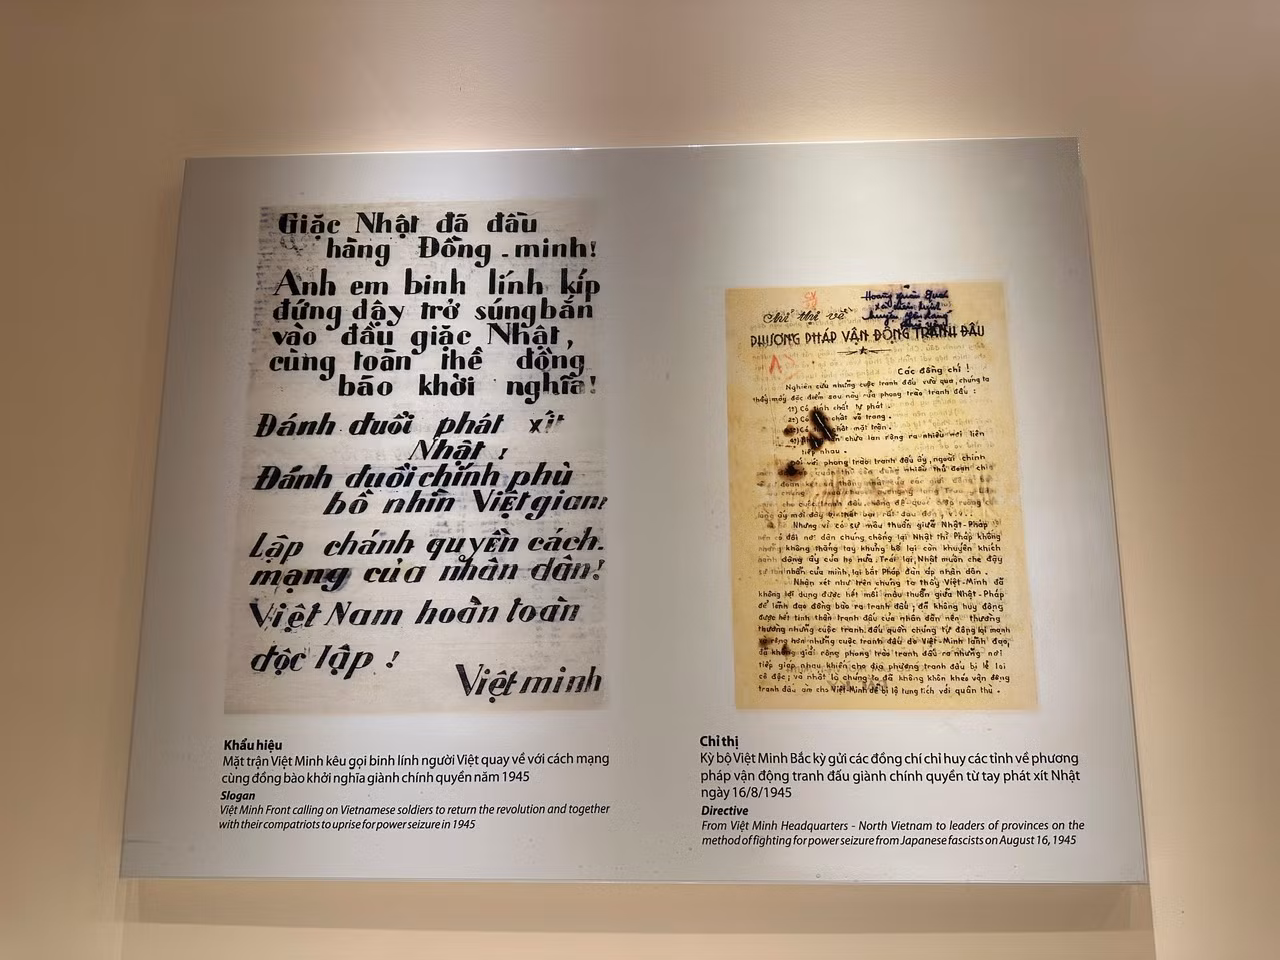 Giặc Nhật đã đầu
hàng Đồng-minh!
Anh em binh lính kíp
đứng dậy trở súng bắn
vào đầu giặc Nhật,
cùng toàn thể đồng
bào khởi nghĩa!
Đánh đuổi phát xít
Nhật!
Đánh đuổi chính phủ
bồ nhìn Việt gian!
Lập chánh quyền cách-
mạng của nhân dân!
Việt Nam hoàn toàn
độc lập!
Việt minh
Khẩu hiệu
Mặt trận Việt Minh kêu gọi binh lính người Việt quay về với cách mạng
cùng đồng bào khởi nghĩa giành chính quyền năm 1945
Slogan
Việt Minh Front calling on Vietnamese soldiers to return the revolution and together
with their compatriots to uprise for power seizure in 1945
Chỉ thị về
PHƯƠNG PHÁP VẬN ĐỘNG TRANH ĐẤU
Các đồng chí!
Nghiên cứu những cuộc tranh đấu vừa qua, chúng ta
thấy mấy đặc điểm sau này của phong trào tranh đấu:
1) Có chất tự phát.
2) Có chất võ trang.
3) Có chất mặt trận.
4) chưa lan rộng ra nhiều nơi liên
tiếp nhau.
với phong trào tranh đấu ấy, ngoài chính
Nhưng vì có sự mâu thuẫn giữa Nhật-Pháp
nên có đôi nơi dân chúng chống lại Nhật thì Pháp không
những không thẳng tay khủng bố lại còn khuyến khích
hành động ấy của họ nữa. Trái lại, Nhật muốn che đậy
nhân của mình, lại bắt Pháp đàn áp nhân dân.
Nhận xét như trên chúng ta thấy Việt-Minh đã
không lợi dụng được hết mối mâu thuẫn giữa Nhật-Pháp
để lãnh đạo đồng bào ra tranh đấu; đã không huy động
được hết tinh thần tranh đấu của nhân dân nên thường
thường những cuộc tranh đấu quần chúng tự động lại mạnh
rộng hơn những cuộc tranh đấu do Việt-Minh lãnh đạo,
đã không giải rộng phong trào tranh đấu ra những nơi
tiếp giáp nhau khiến cho địa phương tranh đấu bị lẻ loi
cô độc; và nhất là chúng ta đã không khôn khéo vận động
tranh đấu làm cho Việt-Minh dễ bị lộ tung tích với quân thù.
Chỉ thị
Kỳ bộ Việt Minh Bắc kỳ gửi các đồng chí chỉ huy các tỉnh về phương
pháp vận động tranh đấu giành chính quyền từ tay phát xít Nhật
ngày 16/8/1945
Directive
From Việt Minh Headquarters - North Vietnam to leaders of provinces on the
method of fighting for power seizure from Japanese fascists on August 16, 1945